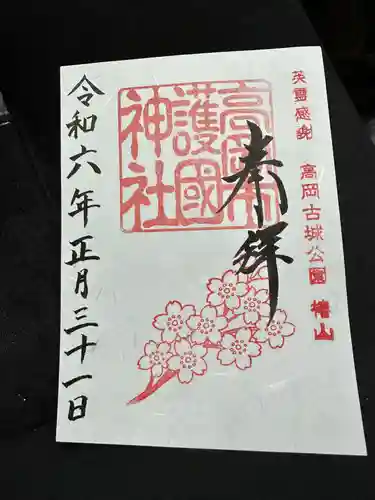 英霊感謝 高岡古城公園 椿山
奉拝
高岡市
護國
神社
令和六年正月三十一日